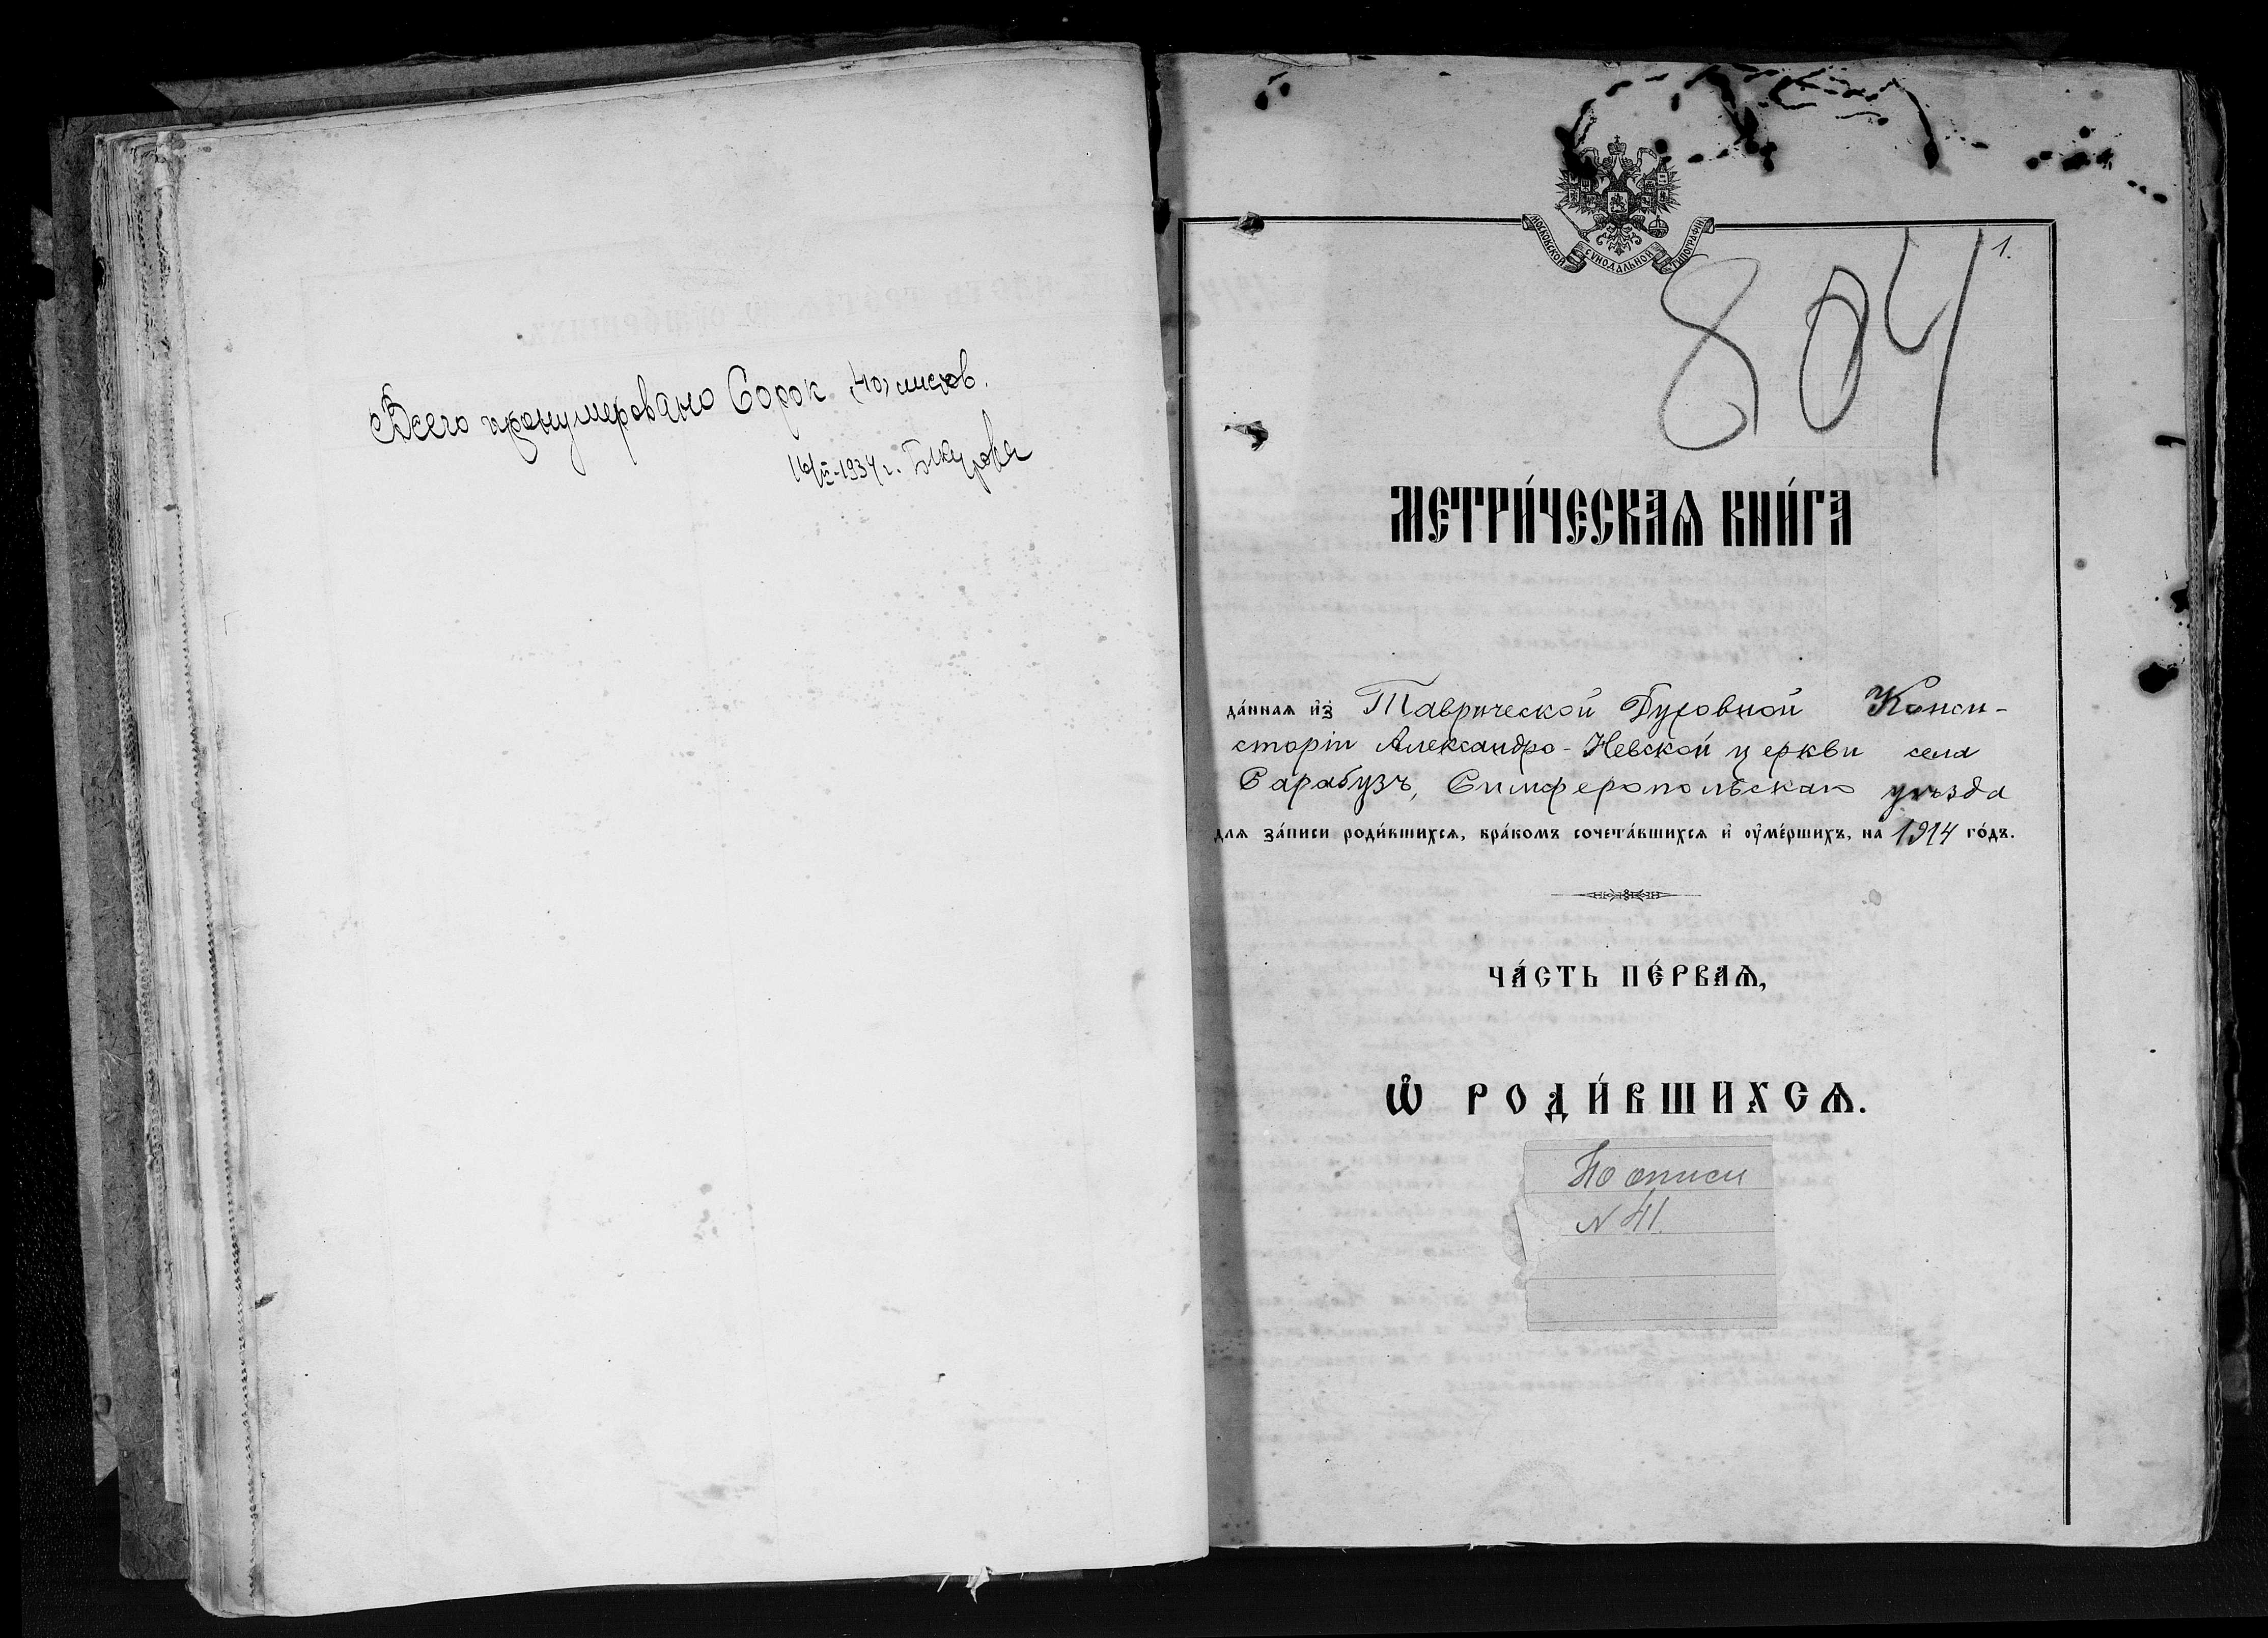 Всего пронумеровано Сорок (40) листов.
16/IV-1934 г.
МОСКОВСКОЙ СѴНОДАЛЬНОЙ ТИПОГРАФІИ
1.
804
МЕТРИ́ЧЕСКАѦ КНИ́ГА
да́ннаѧ и҆з̾ Таврической Духовной Конси-
сторіи Александро-Невской церкви села
Сарабузъ, Симферопольскаго уѣзда
для за́писи роди́вшихсѧ, бра́комъ сочета́вшихсѧ и҆ ᲂу҆ме́ршихъ, на 1914 го́дъ.
ЧА́СТЬ ПЕ́РВАѦ,
Ѡ҆ РОДИ́ВШИХСѦ.
По описи
N 41.